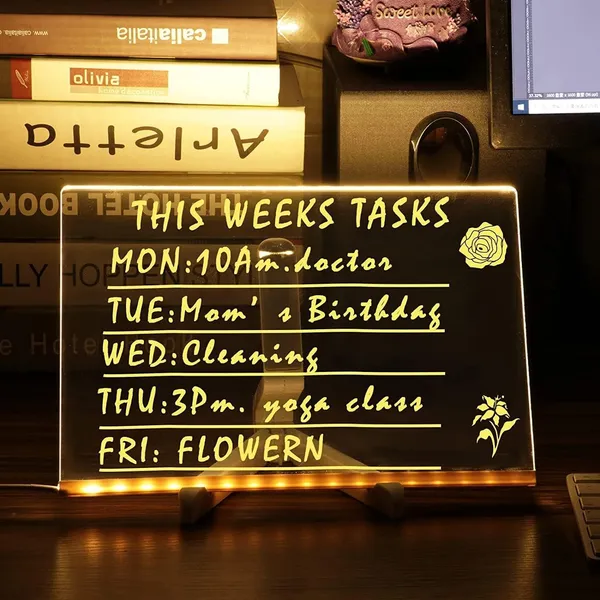 Sweet Love
calliaitalia
olivia
Arletta
THE HOTEL BOOK
LLY HOPPEN STYLE
e Hote
THIS WEEKS TASKS
MON:10Am.doctor
TUE:Mom's Birthday
WED:Cleaning
THU:3Pm. yoga class
FRI: FLOWERN